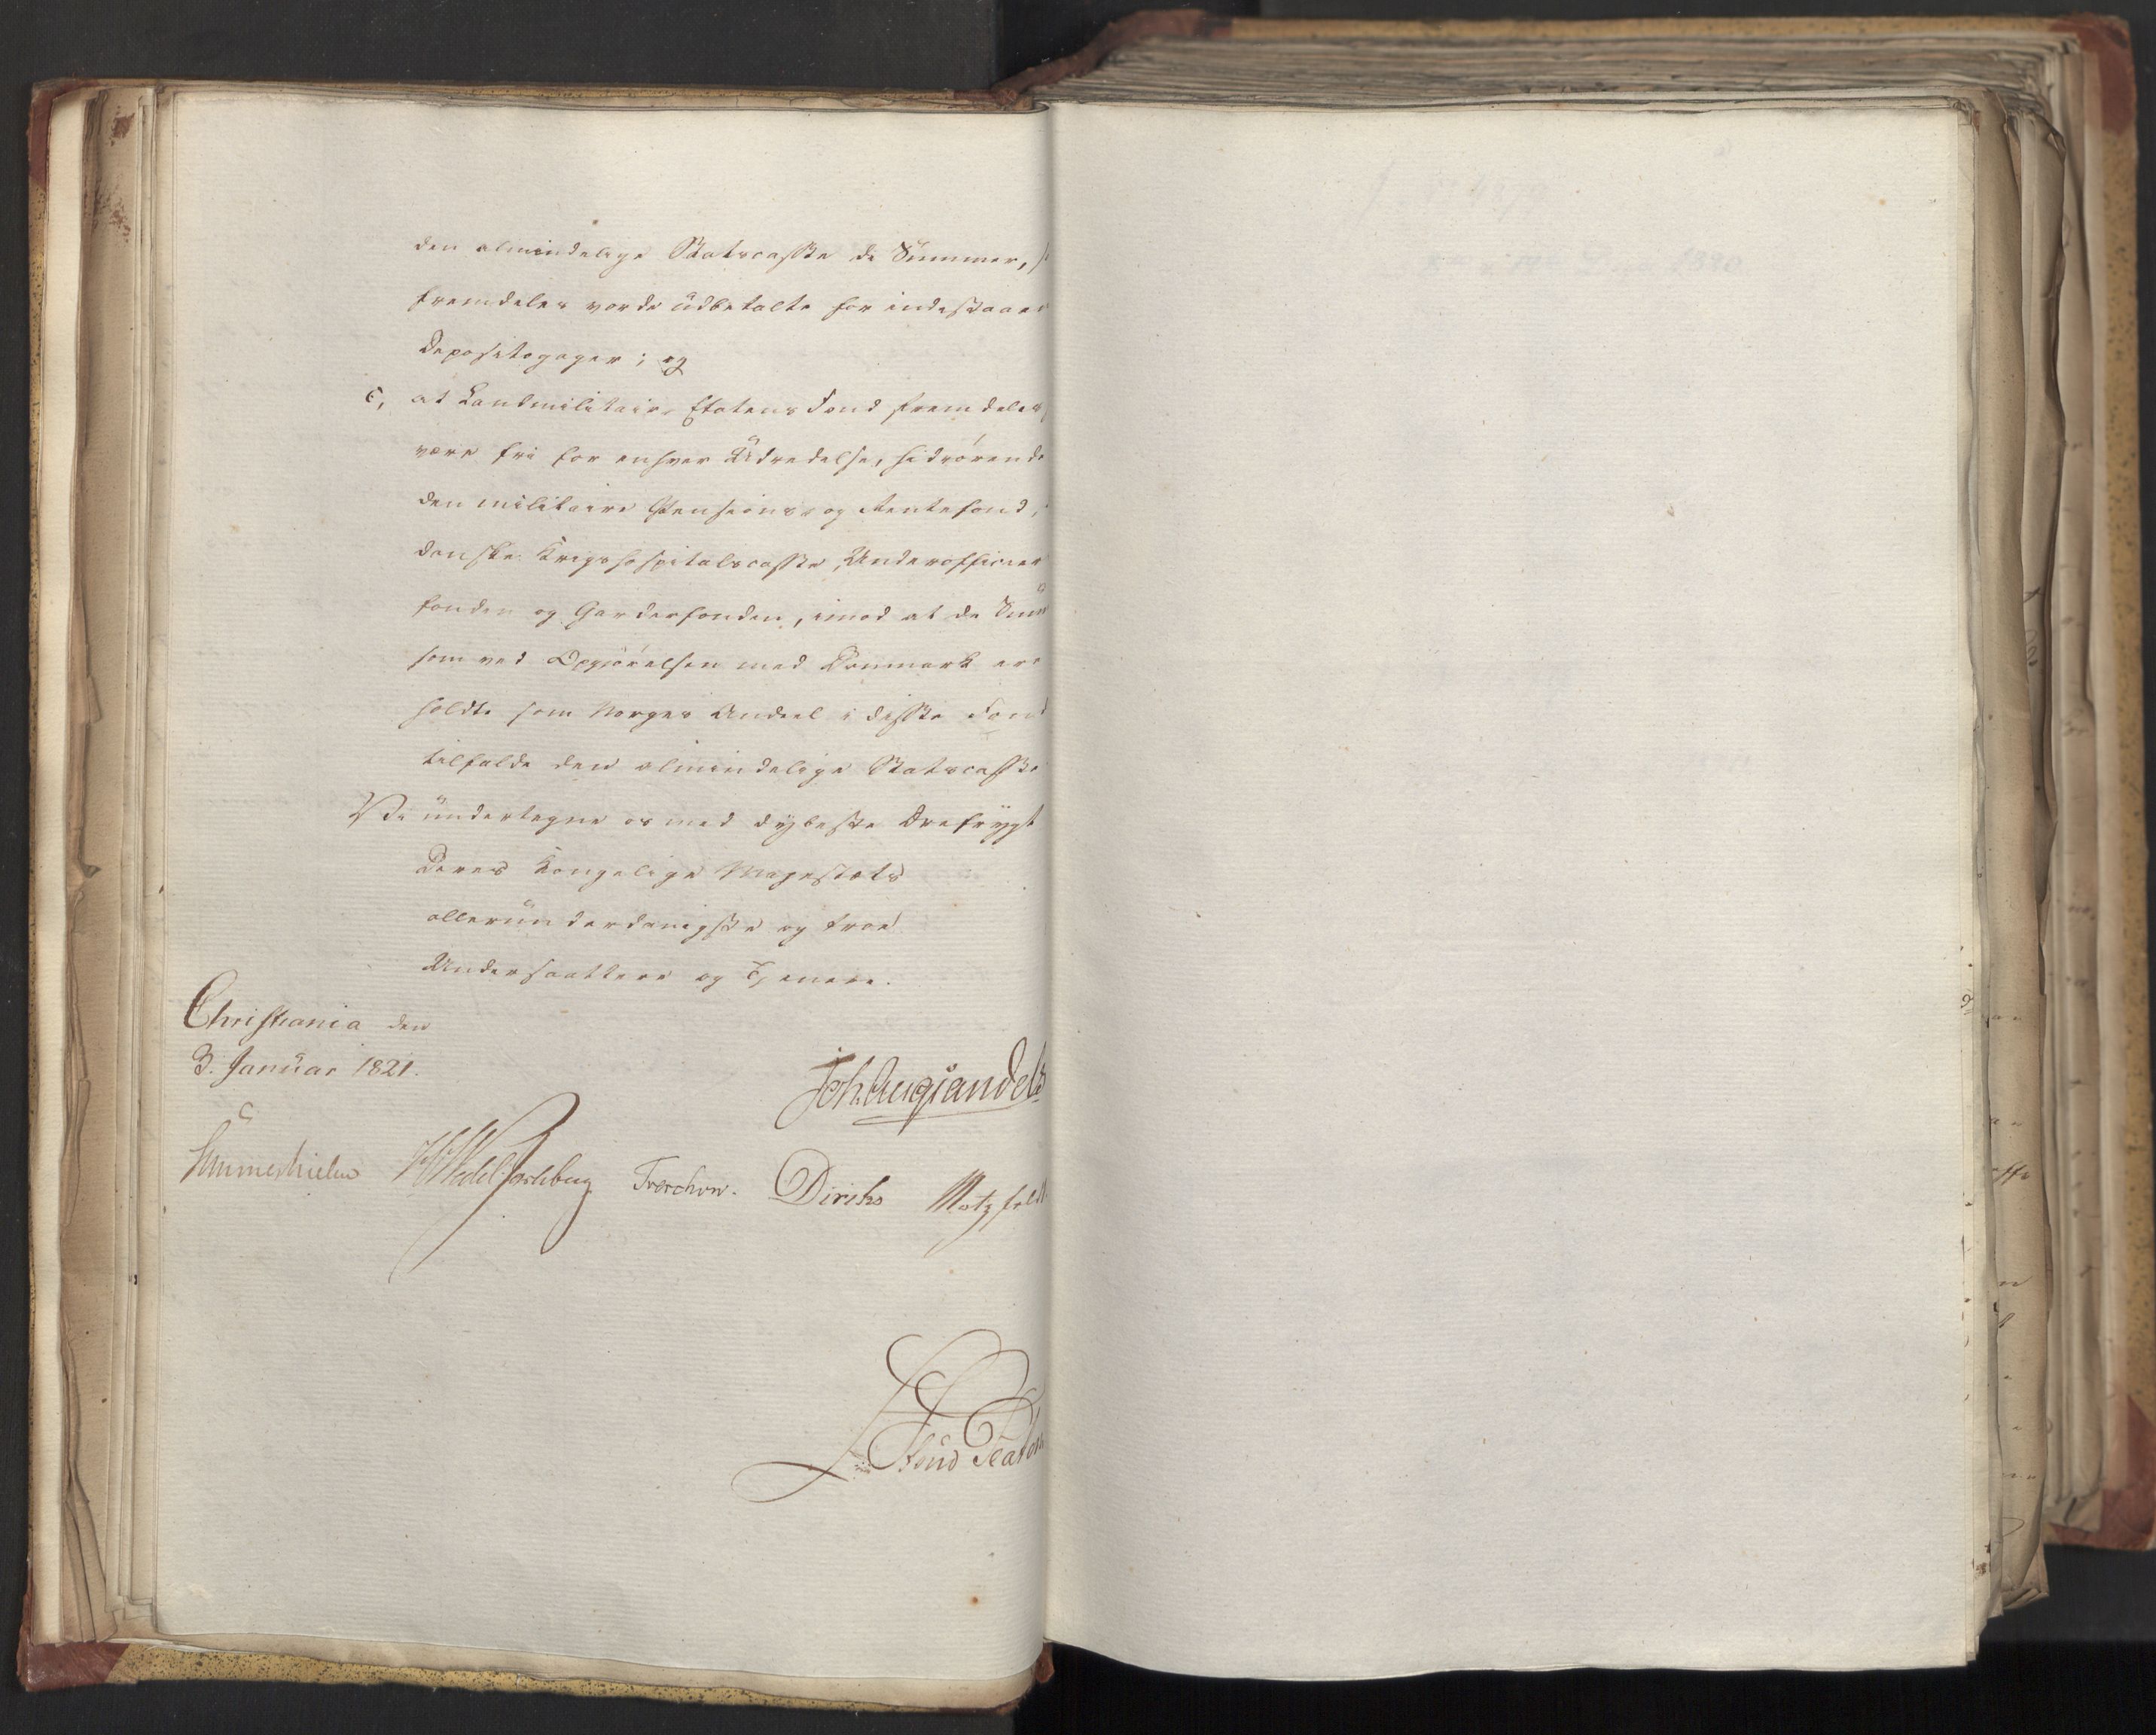 den almindelige Statscasse de Summer,
fremdeles vorde udbetalte for indestaaen
Depositogager; og
c, at Landmilitair-Etatens Fond fremdeles
være fri for enhver Udredelse, hidrørende
den militaire Pensions- og Rentefond,
danske Krigshospitalscasse, Underofficier
fonden og Garderfonden, imod at de Sum
som ved Opgjørelsen med Danmark ere
holdte som Norges Andeel i disse Fond
tilfalde den almindelige Statscasse
Vi undertegne os med dybeste Ærefrygt
Deres Kongelige Majestæts
allerunderdanigste og troe
Undersaattere og Tjenere.
Christiania den
3. Januar 1821.
Joh. Aug Sandels
Sommerhielm HWedel Jarlsberg Treschow. Diriks Motzfeldt